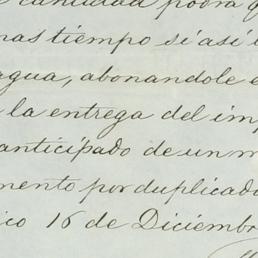 cantidad podrá q
mas tiempo si así
agua, abonandole e
la entrega del im
anticipado de un m
mento por duplicado
ico 16 de Diciembr